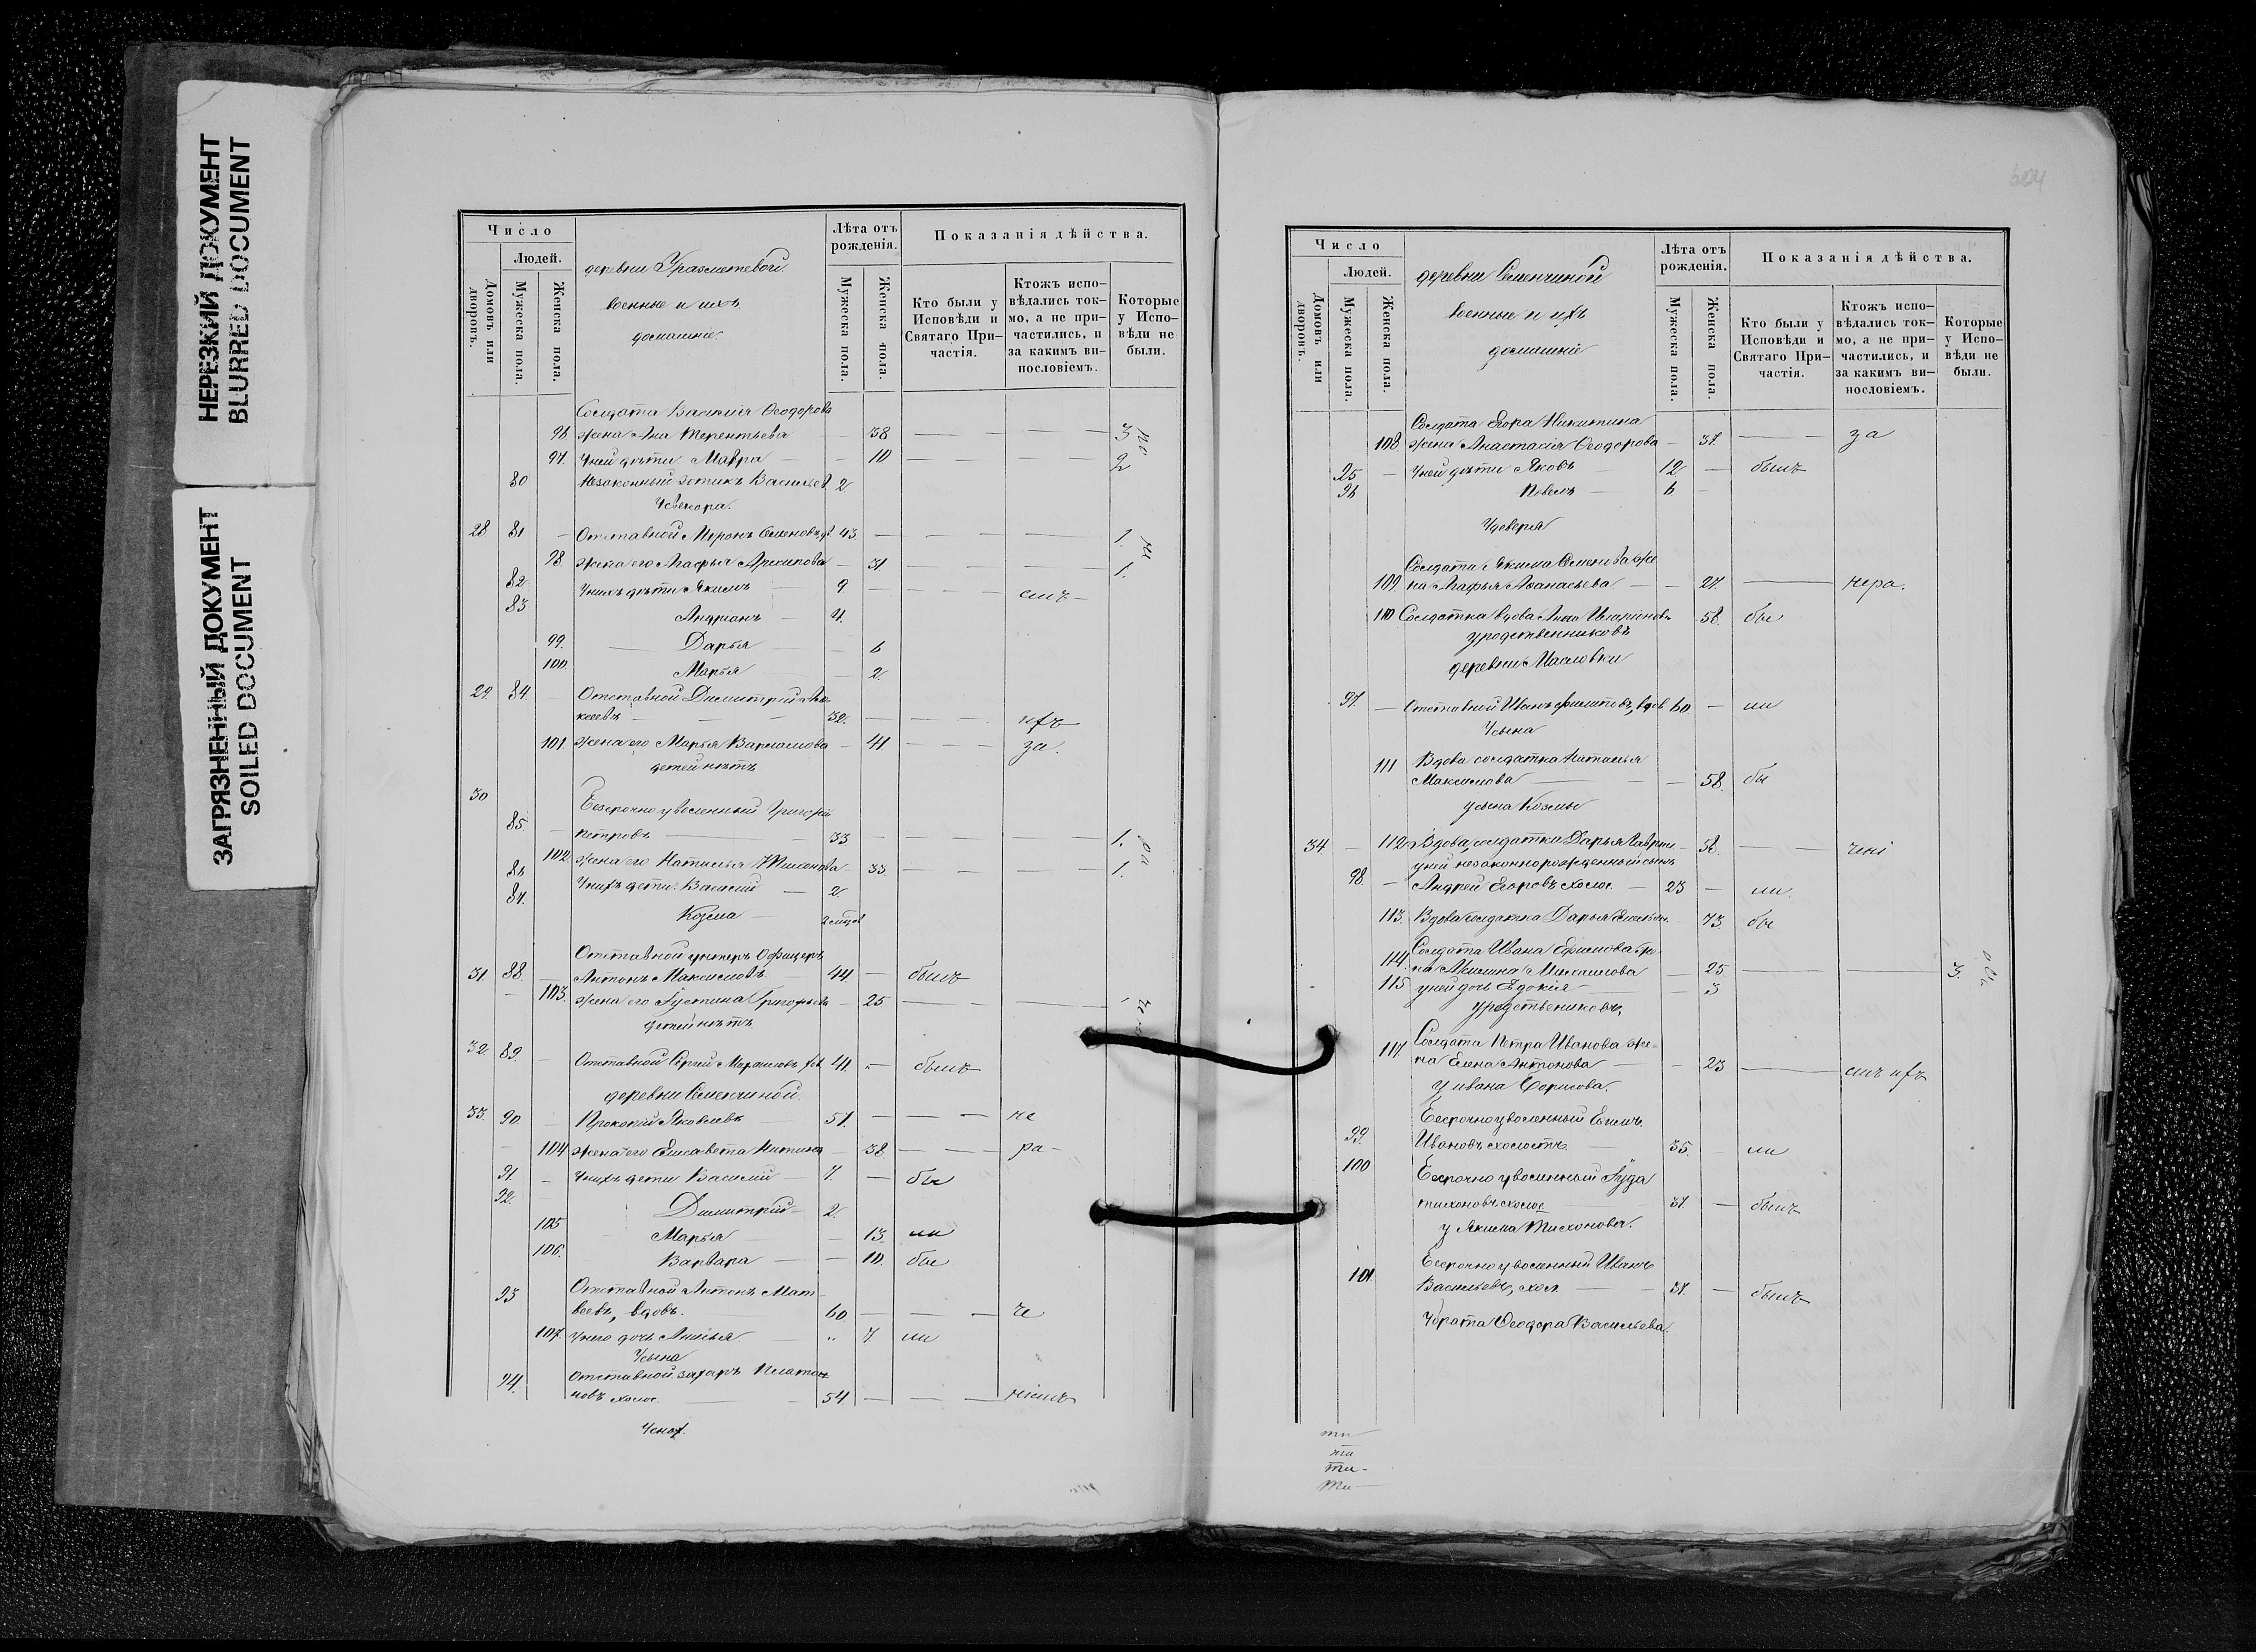 НЕРЕЗКИЙ ДОКУМЕНТ
BLURRED DOCUMENT
ЗАГРЯЗНЕННЫЙ ДОКУМЕНТ
SOILED DOCUMENT
Число
Людей.
Домовъ или дворовъ.
Мужеска пола.
Женска пола.
деревни
военные и ихъ
домашніе.
Лѣта отъ рожденія.
Мужеска пола.
Женска пола.
Показанія дѣйства.
Кто были у Исповѣди и Святаго При-частія.
Ктожъ испо-вѣдались ток-мо, а не при-частились, и за какимъ ви-нословіемъ.
Которые у Испо-вѣди не были.
Солдата Василія Ѳеодорова
96 жена Анна Терентьева — 38 — — — 3
97. У ней дѣти Мавра — 10 — — — 2
80 Незаконный Василье 2
У свекора.
28 81 — Отставной Миронъ Семеновъ 43 — — — 1.
98. жена его Агафья Архипова — 31 — — — 1.
82 У нихъ дѣти Якимъ 9. — — — —
83 Андріанъ — 4.
99. — Дарья — 6
100. Марья — 2.
29. 84. — Отставной Димитрій
— — 32. — —
101. жена его Марья Варламова — 41 — — — за.
детей нѣтъ
30
85. — Безсрочно уволенный Григорій
Петровъ — 33 — — — 1.
102. жена его Наталья — 33. — — — 1.
86 У нихъ дети: Василій — 2.
87. Козма 2 мѣсяц
Отставной унтеръ Офицеръ
31. 88. — Антонъ Максимовъ — 44 — былъ
— 103. жена его Іустина Григорьева — 25 — — —
детей нѣтъ
32. 89. — Отставной Сергій 41 — былъ
деревни Семенчиной
33. 90 — Прокопій Яковлевъ — 51. — — — не
— 104 жена его Елисавета Никитина — 38 — — — ра-
91. — У нихъ дети Василій — 7. — бы
92. — Димитрій — 2.
105 Марья — — 13. ли
106. Варвара — — 10. бы
93 Отставной Антонъ Мат-
веевъ, вдовъ. 60 — — — че
107. У него дочь Анисья — 7 ли
У сына
94. Отставной Захаръ Платоно-
новъ холос. — — 54. — — —
604
Число
Людей.
Домовъ или дворовъ.
Мужеска пола.
Женска пола.
деревни Семенчиной
военные и ихъ
домашніе
Лѣта отъ рожденія.
Мужеска пола.
Женска пола.
Показанія дѣйства.
Кто были у Исповѣди и Святаго При-частія.
Ктожъ испо-вѣдались ток-мо, а не при-частились, и за какимъ ви-нословіемъ.
Которые у Испо-вѣди не были.
Солдата Егора Никитина
108. жена Анастасія Ѳеодорова — 37. — — за
95 — У ней дѣти Яковъ — 12 — былъ
96 Павелъ — 6 —
У деверя
Солдата Якима Семенова же
109. на Агафья Аѳанасьева — — 27. — нера.
110 Солдатка вдова Анна 58. бы
у родственниковъ
деревни Масловки
97. — Отставной Иванъ Филиповъ, вдов 60 — ли
У сына
111 Вдова солдатка Наталья
Максимова — — 58. бы
у сына Козмы
34. — 112. Вдова солдатка Дарья — 56. — —
у ней незаконнорожденный сынъ
98. — Андрей Егоровъ холос — 23 — ли.
113. Вдова солдатка Дарья Емельян. — 73. бы
Солдата Ивана Ефимова же-
114. на Акилина Михаилова — 25 — 3.
115 у ней дочь Евдокія — — 3
у родствениковъ,
Солдата Петра Иванова же-
117. на Елена Антонова — — 23 —
у Ивана Борисова.
99. Безсрочно уволенный
Ивановъ холостъ — 35. — ли
100 Безсрочно уволенный Іуда
Тихоновъ холос — 37. — былъ
у Якима Тихонова.
101 Безсрочно уволенный Иванъ
Васильевъ, хол. — 37. — былъ
У брата Ѳеодора Васильева.
ти
ти
ти-
ти